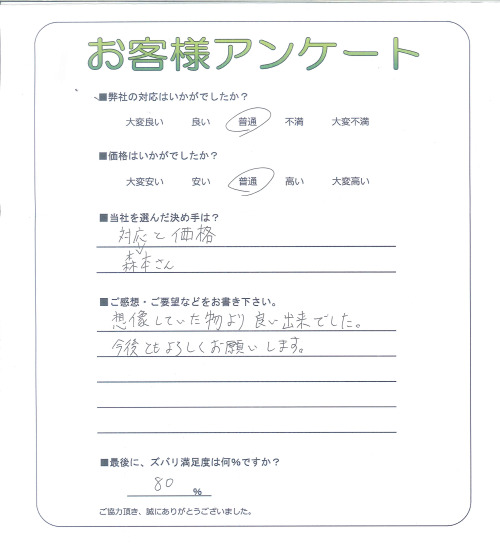 お客様アンケート
■弊社の対応はいかがでしたか？
大変良い 良い 普通 不満 大変不満
■価格はいかがでしたか？
大変安い 安い 普通 高い 大変高い
■当社を選んだ決め手は？
対応と価格
森本さん
■ご感想・ご要望などをお書き下さい。
想像していた物より良い出来でした。
今後ともよろしくお願いします。
■最後に、ズバリ満足度は何%ですか？
80 %
ご協力頂き、誠にありがとうございました。